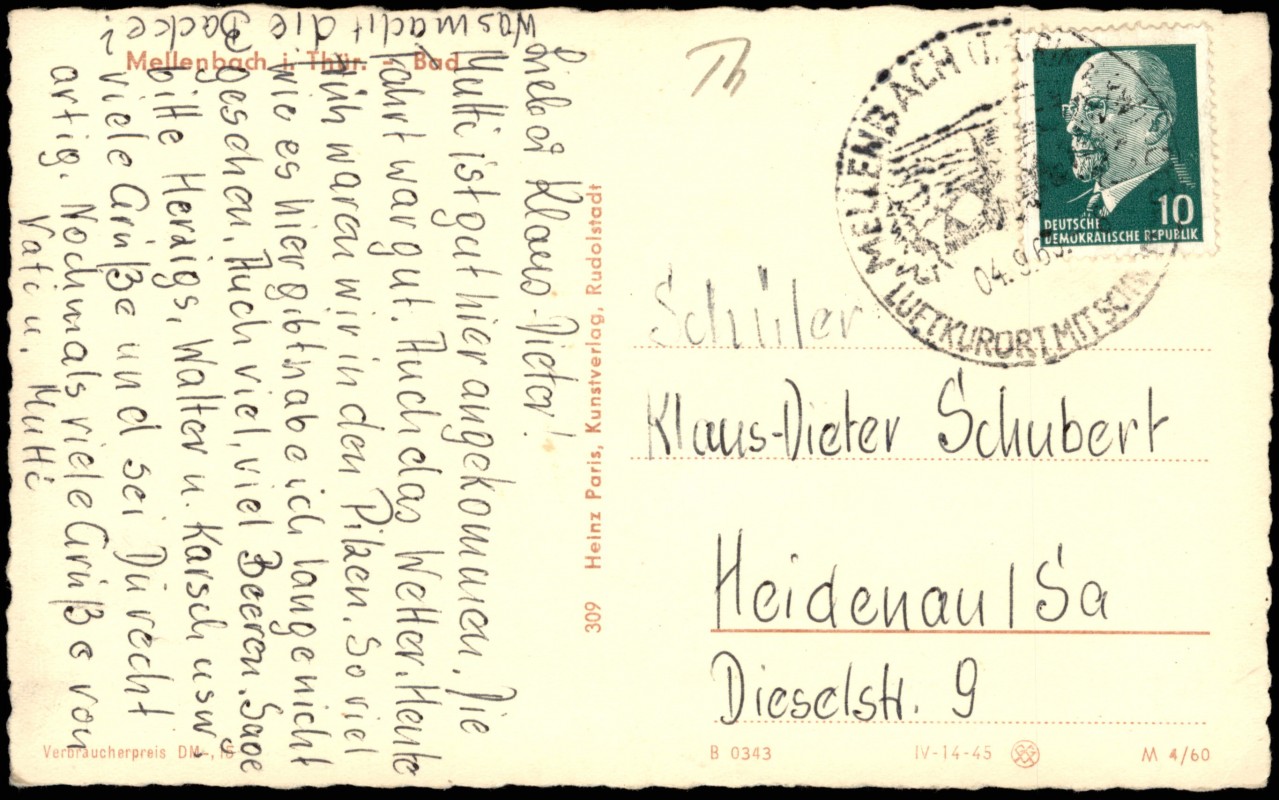 Mellenbach i. Thür. - Bad
Was macht die Backe?
Lieber Klaus-Dieter!
Mutti ist gut hier angekommen. Die
Fahrt war gut. Auch das Wetter. Heute
früh waren wir in den Pilzen. So viel
wie es hier gibt habe ich lange nicht
gesehen. Auch viel, viel Beeren. Sage
bitte Herdigs, Walter u. Karsch usw.
viele Grüße und sei Du recht
artig. Nochmals viele Grüße von
Vati u. Mutti
Verbraucherpreis DM -,15
309 Heinz Paris, Kunstverlag, Rudolstadt
Th
MELLENBACH
LUFTKURORT MIT
04.9.63
10
DEUTSCHE
DEMOKRATISCHE REPUBLIK
Schüler
Klaus-Dieter Schubert
Heidenau/Sa
Dieselstr. 9
B 0343 IV-14-45 M 4/60